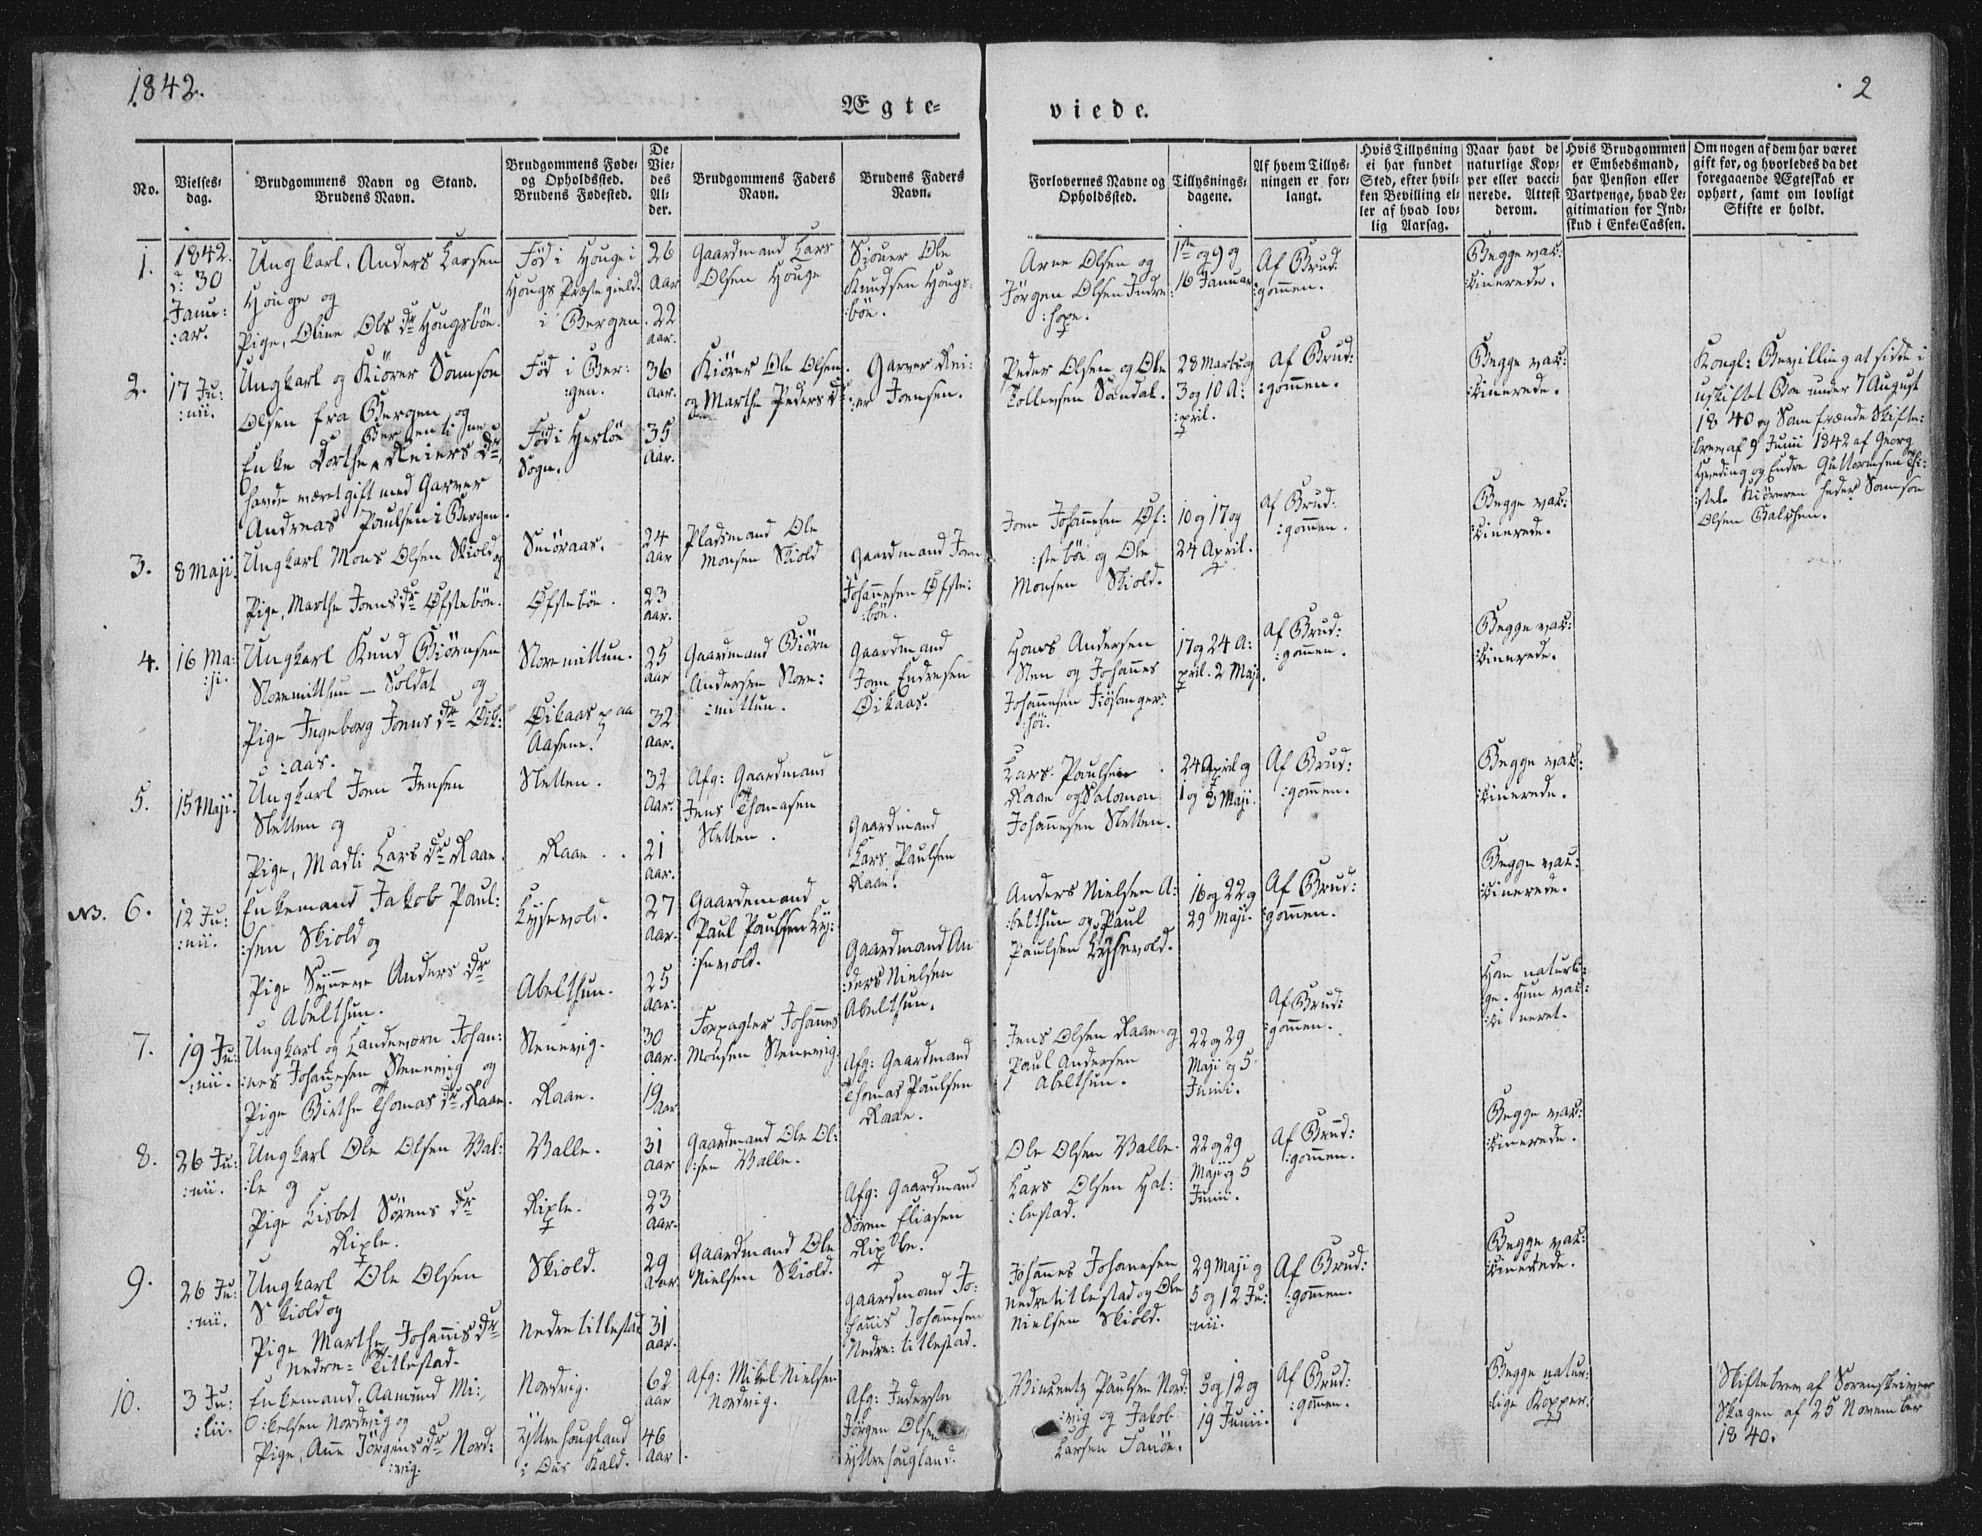 1842.
2
Ægte-
viede.
No.
Vielses-
dag.
Brudgommens Navn og Stand.
Brudens Navn.
Brudgommens Føde-
og Opholdssted.
Brudens Fødested.
De
Vie-
des
Al-
der.
Brudgommens Faders
Navn.
Brudens Faders
Navn.
Forlovernes Navne og
Opholdssted.
Tillysnings-
dagene.
Af hvem Tillys-
ningen er for-
langt.
Hvis Tillysning
ei har fundet
Sted, efter hvil-
ken Bevilling el-
ler af hvad lov-
lig Aarsag.
Naar havt de
naturlige Kop-
per eller vacci-
nerede. Attest
derom.
Hvis Brudgommen
er Embedsmand,
har Pension eller
Vartpenge, hvad Le-
gitimation for Ind-
skud i Enke-Cassen.
Om nogen af dem har været
gift før, og hvorledes da det
foregaaende Ægteskab er
ophørt, samt om lovligt
Skifte er holdt.
1.
1842.
d: 30
Janu:
:ar.
Ungkarl, Anders Larsen
Houge og
Pige, Oline Ols Dr Hougsbøe.
Fød i Houge i
Hougs Præstegield
i Bergen.
26
Aar
22
aar.
Gaardmand Lars
Olsen Houge
Siouer Ole
Knudsen Hougs:
:bøe.
Arne Olsen og
Jörgen Olsen Indre
:hope.
1ste og 9 og
16 Januar
Af Brud:
:gommen.
Begge vak:
:cinerede.
2.
17 Ju:
:nii.
Ungkarl og Kiörer Samson
Olsen fra Bergen og
Enke Dorthe Reiers Dr,
havde været gift med Garver
Andreas Paulsen i Bergen.
Fød i Ber:
:gen.
Fød i Herløe
Sogn.
36
aar.
35
Aar.
Kiörer Ole Olsen
og Marthe Peders Dr
Garver Rei:
:er Joensen.
Peder Olsen og Ole
Tollevsen Sandal.
28 Marts og
3 og 10 A:
:pril.
Af Brud:
:gommen.
Begge vak:
:cinerede.
Kongl: Bevilling at sidde i
uskiftet Boe under 7 August
1840 og Samfrænde Skifte:
:brev af 9 Junii 1842 af Georg
Hveding og Endre Guttormsen
Kiöreren heder Samson
Olsen
3.
8 Maji.
Ungkarl Mons Olsen Skiold og
Pige, Marthe Joens Dr Øfstebøe.
Smöraas.
Øfstebøe.
24
Aar
23
aar.
Pladsmand Ole
Monsen Skiold
Gaardmand Joen
Johannesen Øfste:
:bøe.
Joen Johannesen Øf:
:stebøe og Ole
Monsen Skiold.
10 og 17 og
24 April.
Af Brud:
:gommen.
Begge vak:
:cinerede.
4.
16 Ma:
:ji.
Ungkarl Knud Biörnsen
Storemitthun — Soldat og
Pige Ingeborg Joens Dr Øik:
:aas.
Storemittun.
Øikaas paa
Aasene.
25
aar
32
aar.
Gaardmand Biörn
Andersen Store:
:mittun.
Gaardmand
Joen Endresen
Øikaas.
Hans Andersen
Sten og Johannes
Johannesen Fiøsanger:
:høi.
17 og 24 A:
pril. 2 Maji.
Af Brud:
:gommen.
Begge vak:
:cinerede.
5.
15 Maji.
Ungkarl Joen Jensen
Sletten og
Pige, Madli Lars Dr Raae.
Sletten.
Raae.
32
Aar.
21
aar.
Afg: Gaardmand
Jens Thomasen
Sletten.
Gaardmand
Lars Paulsen
Raae.
Lars Paulsen
Raae og Salomon
Johannesen Sletten.
24 April og
1 og 8 Maji.
Af Brud:
:gommen.
Begge vak:
:cinerede.
NB. 6.
12 Ju:
:nii.
Enkemand Jakob Paul:
:sen Skiold og
Pige Synneve Anders Dr
Abelthun.
Lysevold.
Abelthun.
27
Aar.
25
Aar.
Gaardemand
Paul Paulsen Ly:
:sevold.
Gaardmand An
:ders Nielsen
Abelthun.
Anders Nielsen A:
:belthun og Paul
Paulsen Lysevold.
16 og 22 og
29 Maji.
Af Brud:
:gommen.
Begge vak:
:cinerede.
7.
19 Ju:
:nii.
Ungkarl og Landeværn Johan:
:nes Johannesen Stenevig og
Pige Birthe Thomas Dr Raae.
Stenevig.
Raae.
30
Aar.
19
Aar
Forpagter Johannes
Monsen Stenevig.
Afg: Gaardmand
Thomas Paulsen
Raae.
Jens Olsen Raae og
Paul Andersen
Abelthun.
22 og 29
Maji og 5
Junii.
Af Brud:
:gommen.
Han naturli:
ge. Hun vak:
:cineret.
8.
26 Ju:
:nii.
Ungkarl Ole Olsen Val:
:le og
Pige Lisbet Sörens Dr
Riple.
Valle.
Riple.
31
Aar
23
Aar.
Gaardmand Ole Ol:
:sen Valle.
Afg: Gaardmand
Sören Eliasen
Riple.
Ole Olsen Valle.
Lars Olsen Hat:
:lestad.
22 og 29
Maji og 5
Junii.
Af Brud:
:gommen.
Begge vak:
:cinerede.
9.
26 Ju:
:nii.
Ungkarl Ole Olsen
Skiold og
Pige Marthe Johannis Dr
Nedre-Titlestad.
Skiold.
Nedretitlestad
29
Aar.
31
aar.
Gaardmand Ole
Nielsen Skiold.
Gaardmand Jo:
hannis Johannesen
Nedre-titlestad.
Johannes Johannesen
Nedretitlestad og Ole
Nielsen Skiold.
29 Maji og
5 og 12 Ju:
:nii.
Af Brud:
:gommen.
Begge vak:
:cinerede.
10.
3 Ju:
:lii.
Enkemand, Aamund Mi:
:kelsen Nordvig og
Pige, Ane Jörgens Dr Nord:
:vig.
Nordvig.
Yttrehougland
i Ous Kald.
62
aar
46
Aar.
Afg: Mikel Nielsen
Nordvig.
Afg: Inderste
Jörgen Olsen
Yttrehougland.
Vinsentz Paulsen Nord:
:vig og Jakob
Larsen Fanöe.
5 og 12 og
19 Junii.
Af Brud:
:gommen.
Begge natur:
:lige Kopper.
Skiftebrev af Sorenskriver
Skagen af 25 November
1840.